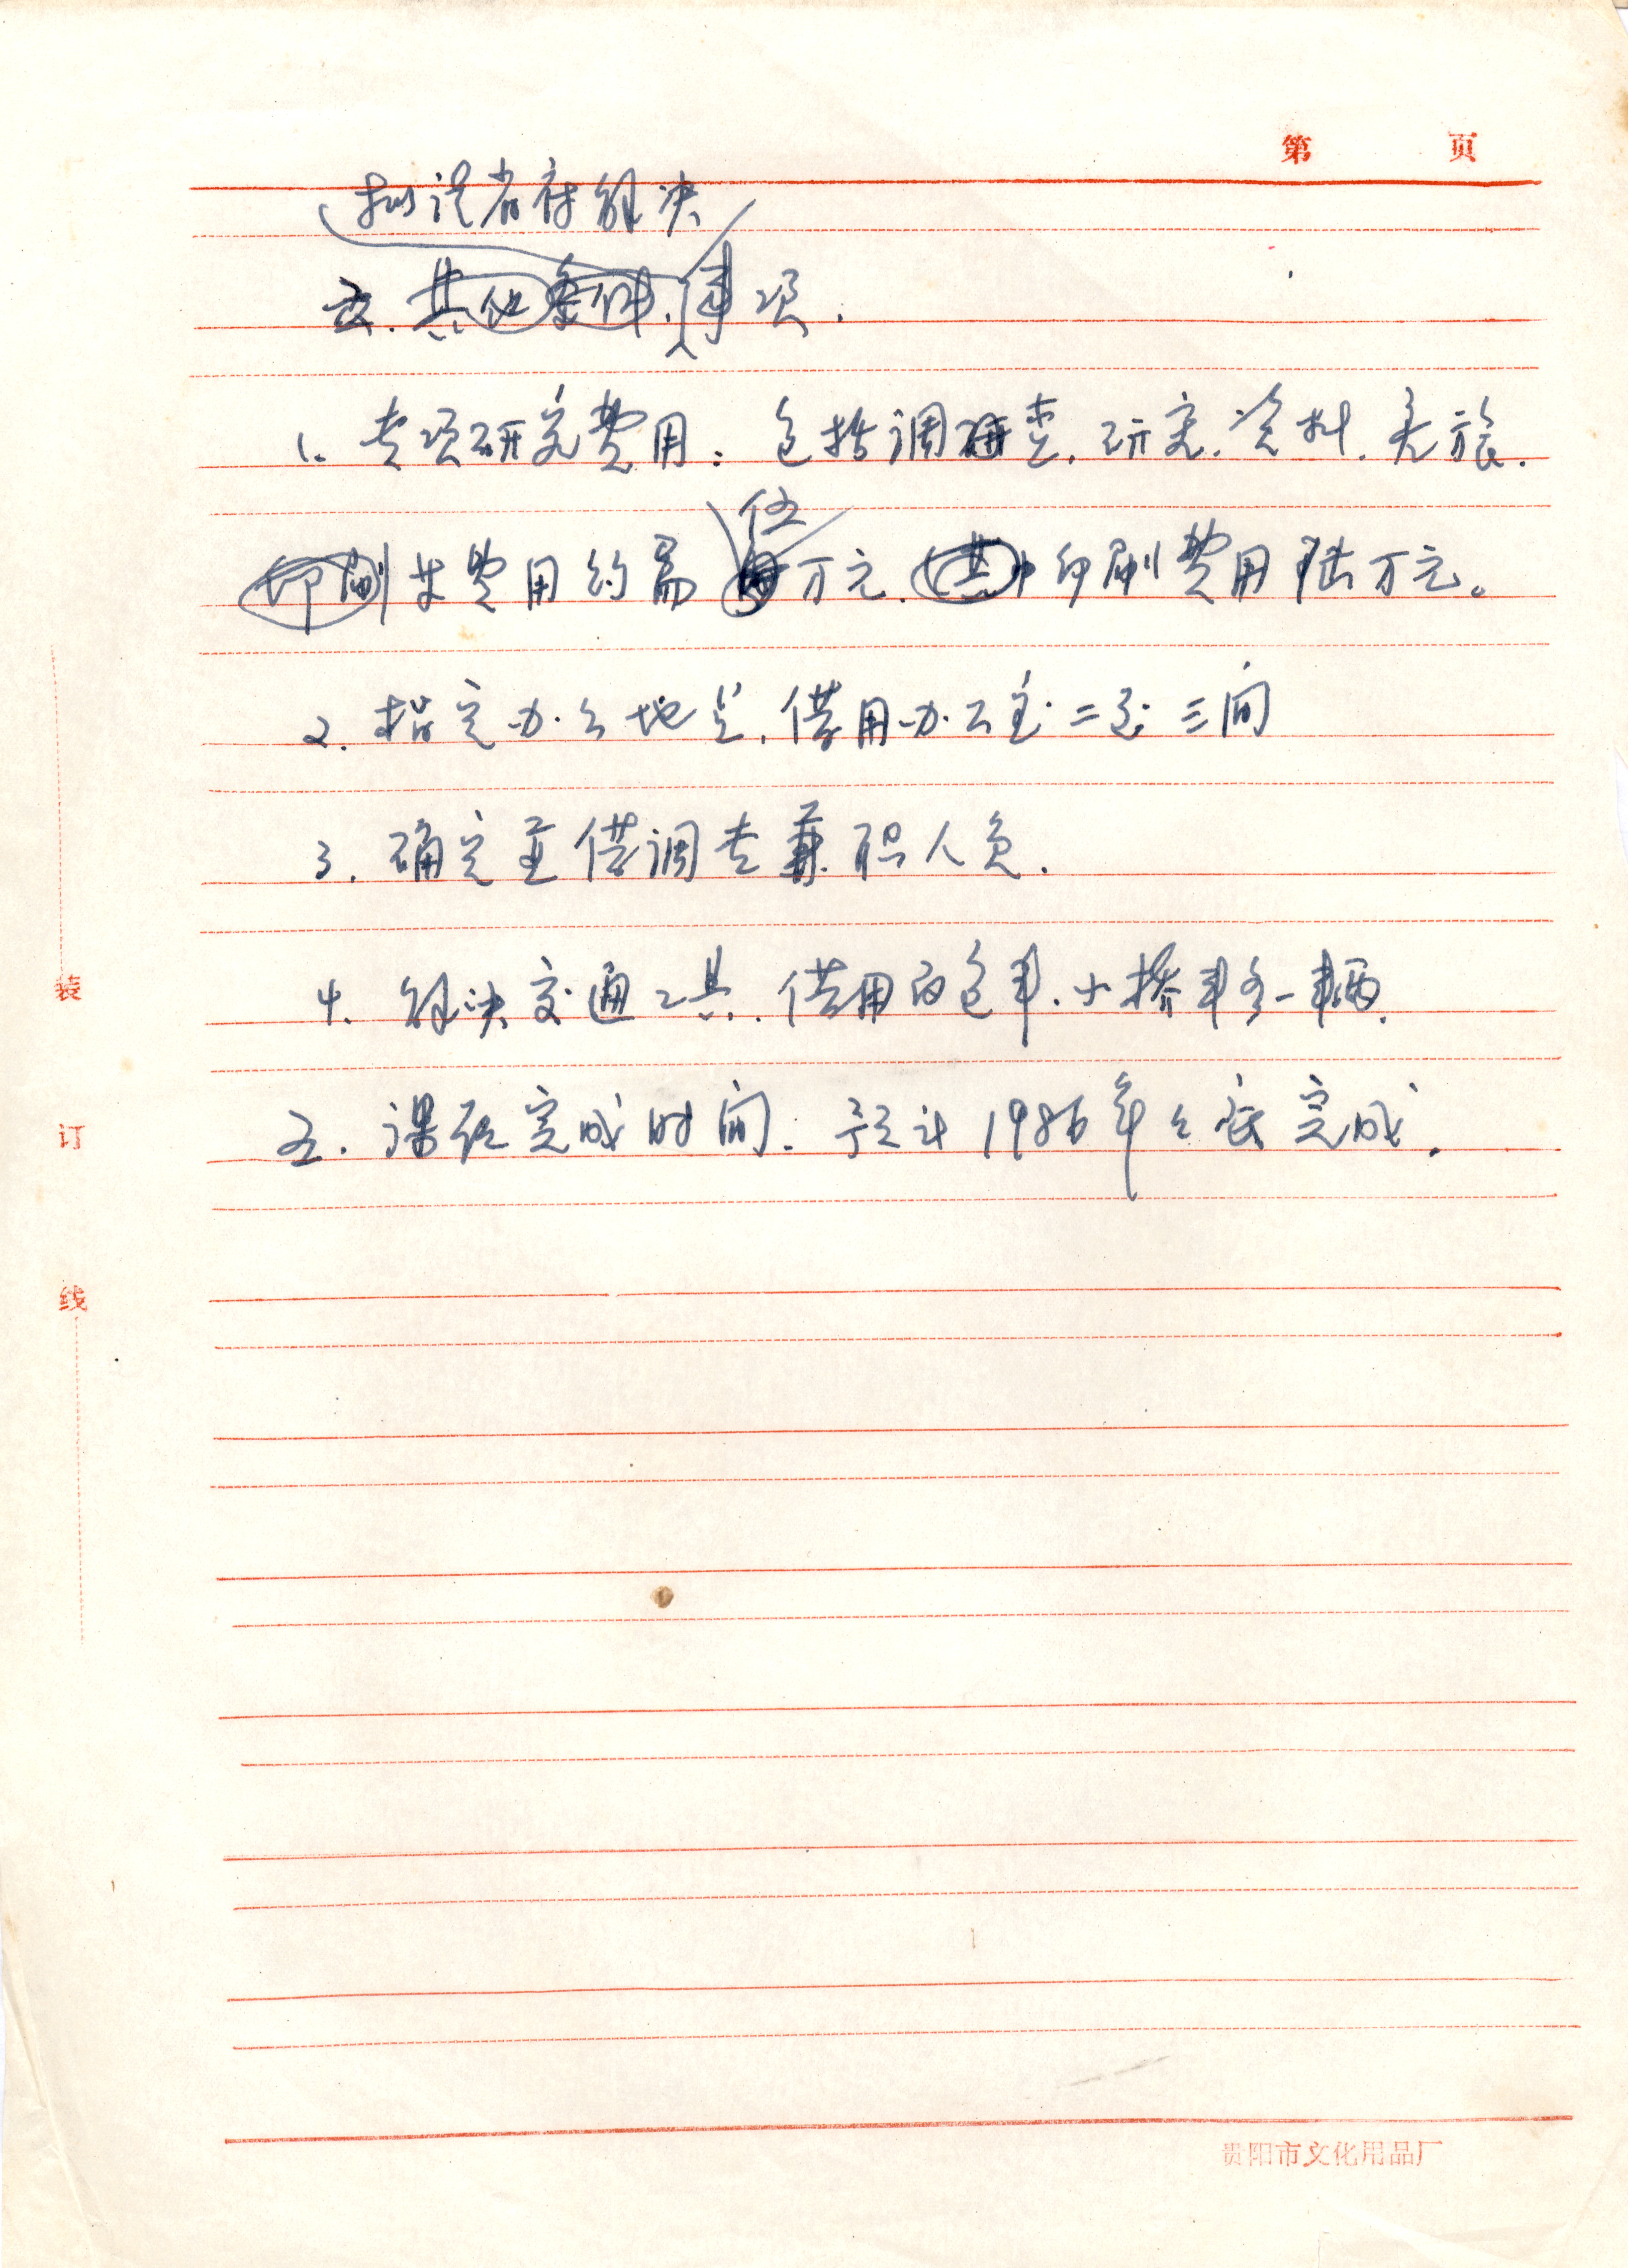 第 页
拟提省府解决
六. 其他条件. 事项.
1. 专项研究费用: 包括调研查. 研究. 资料. 差旅.
印刷等费用约需 伍万元. 其中印刷费用陆万元。
2. 指定办公地点. 借用办公室二至三间
3. 确定并借调专兼职人员.
4. 解决交通工具. 借用面包车. 小轿车各一辆.
五. 课题完成时间: 预计1986年年底完成.
装
订
线
贵阳市文化用品厂